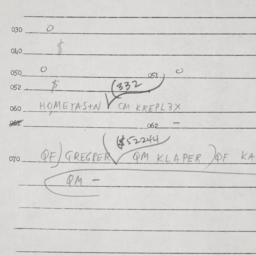 030 0
040 $
050 0 051 0
052 $ (332
060 HOMETASTN CM KREPL3X
062 —
($52244
070 QF) GREGPER QM KLAPER) QF KA
QM —